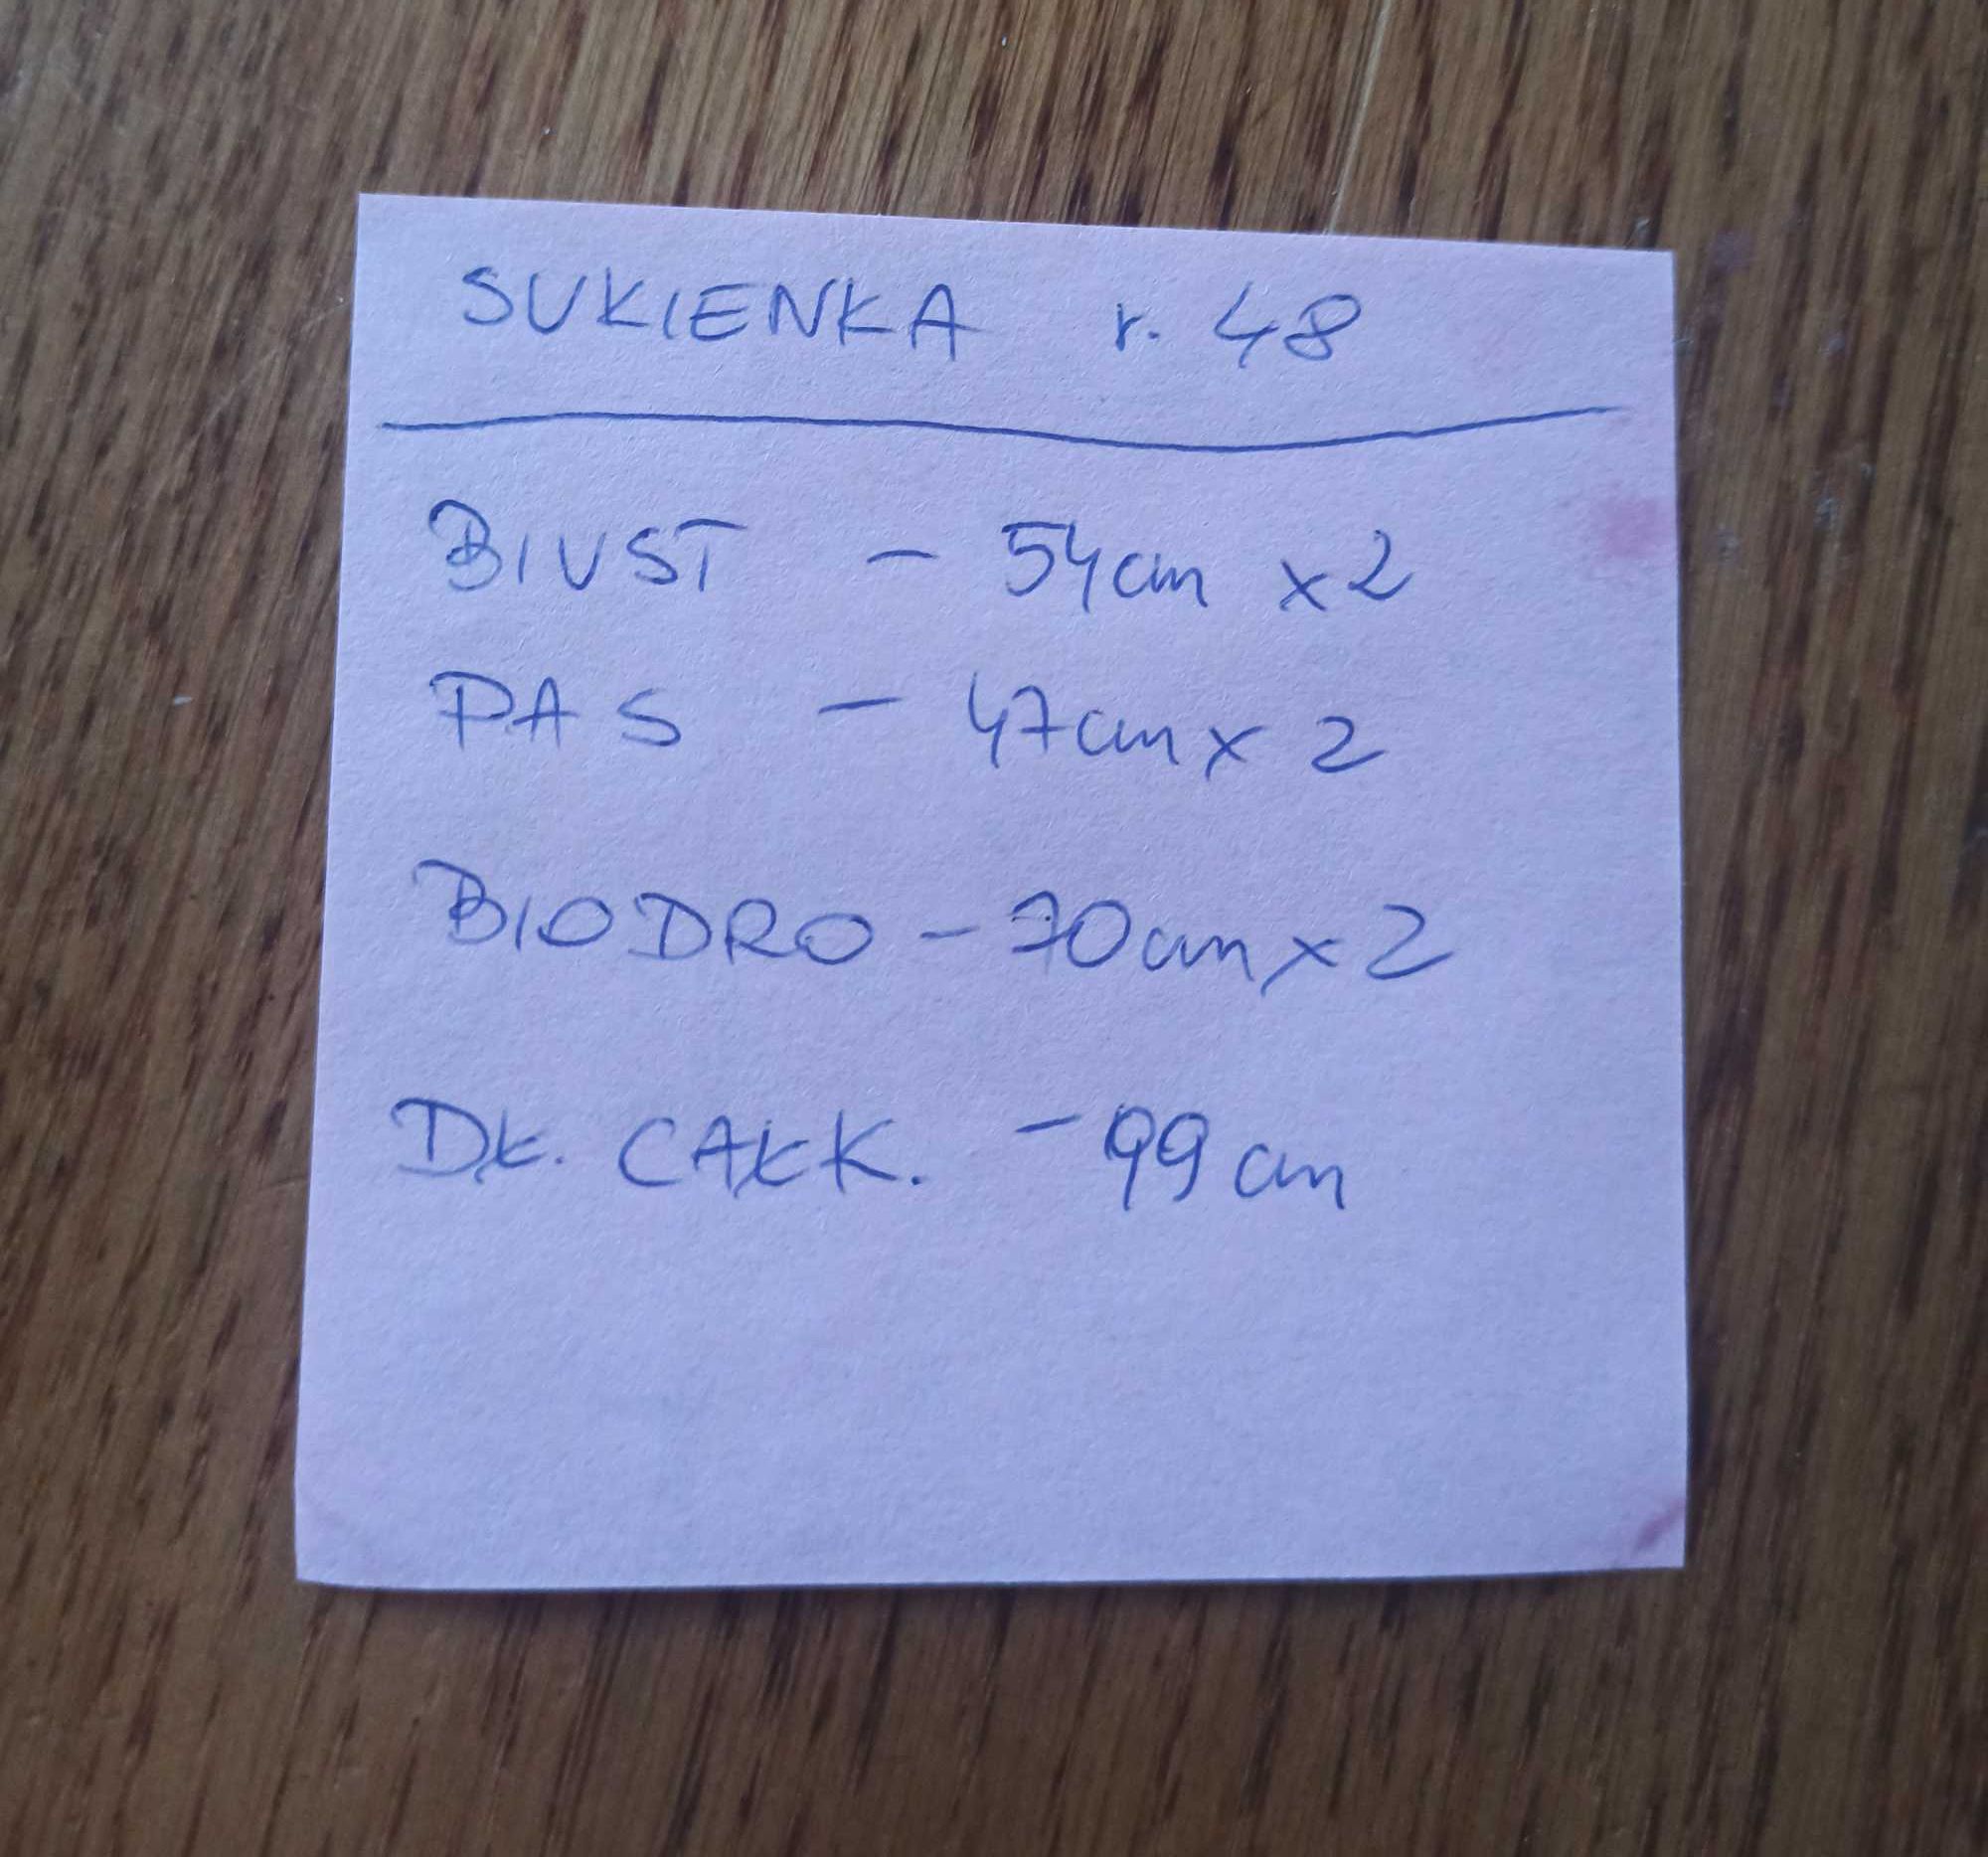 SUKIENKA r. 48
BIUST - 54cm x2
PAS - 47cm x 2
BIODRO - 70cm x 2
DŁ. CAŁK. - 99 cm